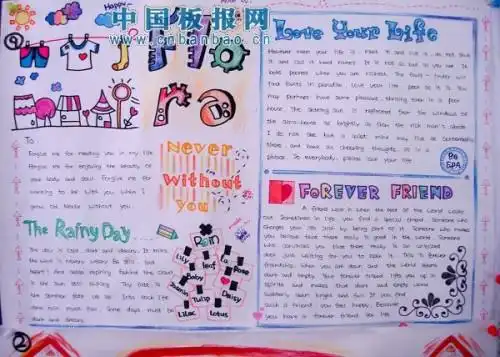 中国板报网
www.cnbanbao.cn
Happy
Love Your Life
However mean your life is, meet it and live it; do not shun
it and call it hard names. It is not so bad as you are. It
looks poorest when you are richest. The fault-finder will
find faults in paradise. Love your life, poor as it is. You
may perhaps have some pleasant, thrilling
house. The setting sun is reflected from the windows of
the alms-house as brightly as from the rich man's abode
I do not see but a quiet mind may live as contentedly
there, and have as cheering thoughts, as in a
palace. To everybody, please love your life.
Be
SPA
To
Forgive me for needing you in my life
Forgive me for enjoying the beauty of
your body and soul. Forgive me for
wanting to be with you when I
grow old
Never without you.
Never
without
you
FOREVER FRIEND
A friend walk in when the rest of the world walks
out. Sometimes in life, you find a special friend. Someone who
changes your life just by being part of it. Someone who makes
you believe that there really is good in the world. Someone
who convinces you that there really is an unlocked
door just waiting for you to open it. This is forever
friendship. When you are down and the world seems
dark and empty, your forever friend lifts you up in
spirits and makes that dark and empty world
suddenly seem bright and full.
such a friend, you feel happy because
you have a forever friend for life
The Rainy Day
The day is cold, dark and dreary. It rains
the wind is never weary. Be still, sad
heart! And cease repining. Behind the cloud
is the sun still shining. Thy fate is
the common fate of all. Into each life
some rain must fall. Some days must be
dark and dreary.
Rain
Lily
Leaf
a
Baby
Rose
Daisy
Tulip
Lilac
Lotus
②